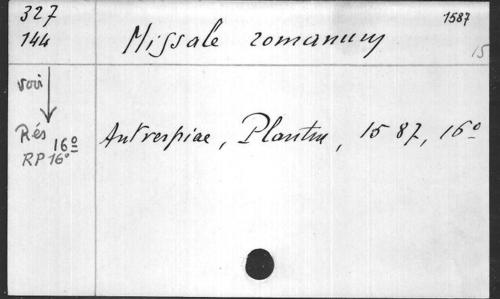 327
144
Missale romanum
1587
15
voir
Rés 16°
RP 16°
Antverpiae, Plantin, 1587, 16°